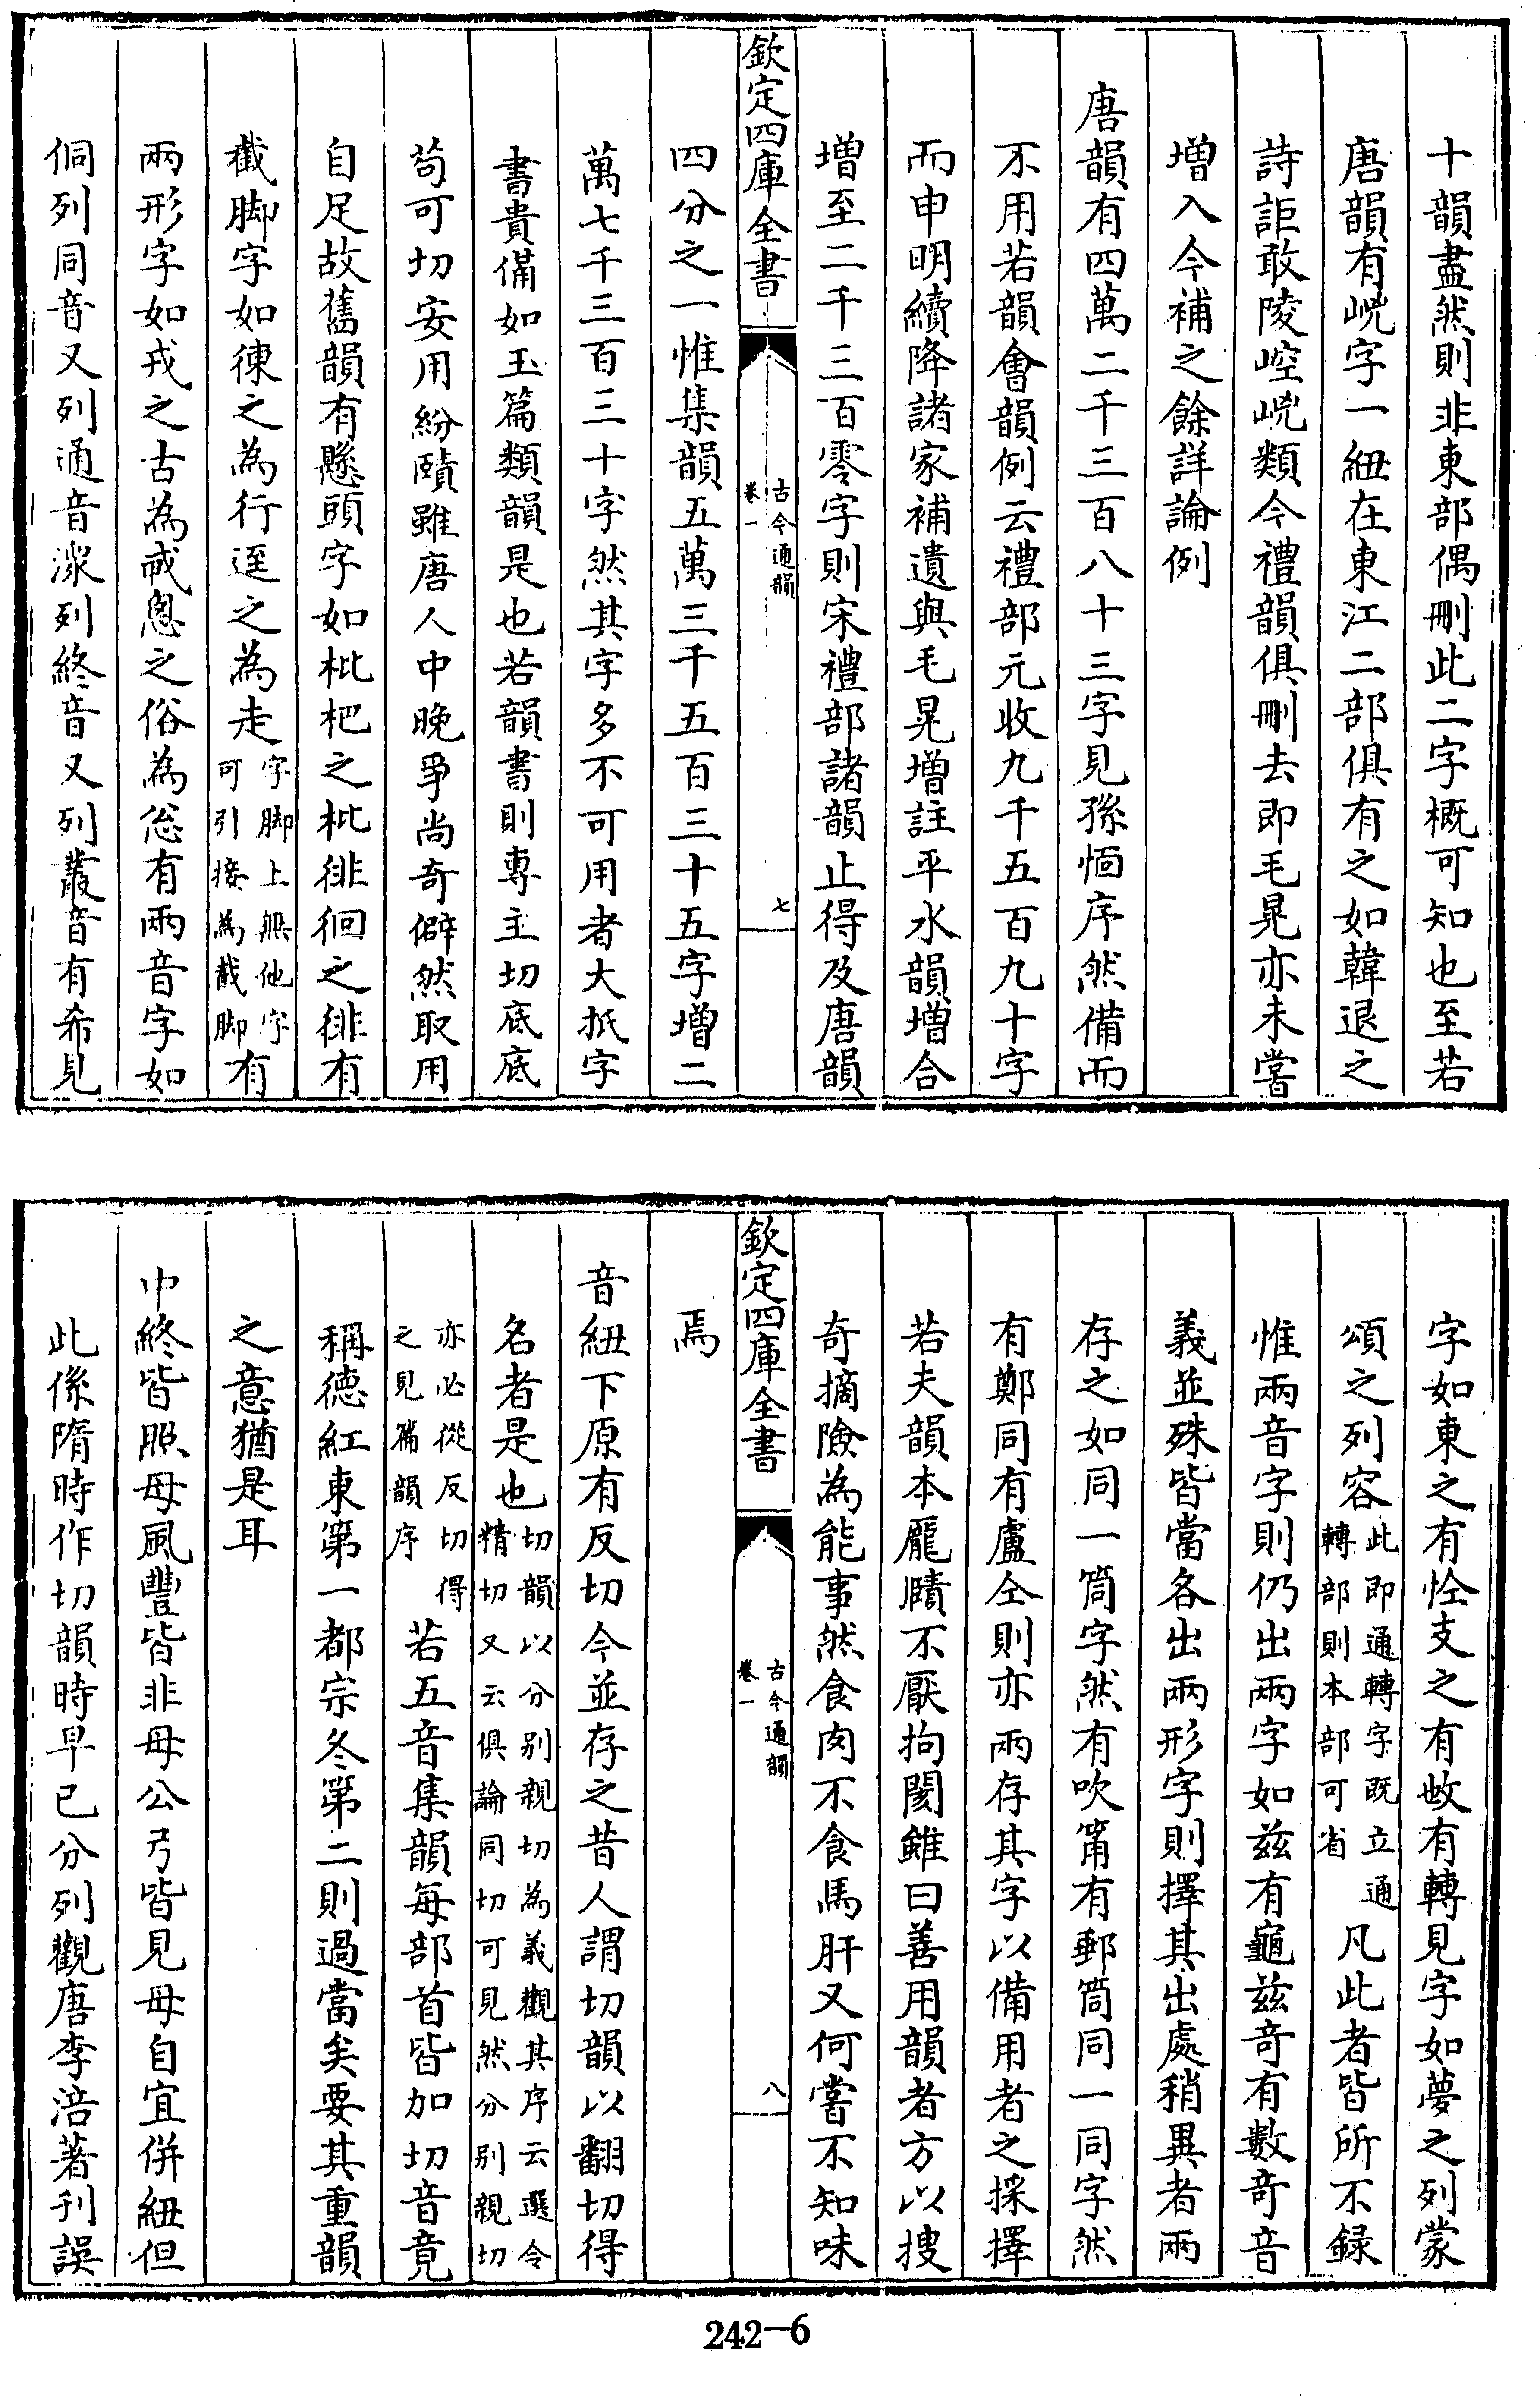 十韻盡然則非東部偶刪此二字概可知也至若
唐韻有㟅字一紐在東江二部俱有之如韓退之
詩詎敢陵崆㟅類今禮韻俱刪去即毛晃亦未嘗
增入今補之餘詳論例
唐韻有四萬二千三百八十三字見孫愐序然備而
不用若韻會韻例云禮部元收九千五百九十字
而申明續降諸家補遺與毛晃增註平水韻增合
增至二千三百零字則宋禮部諸韻止得及唐韻
欽定四庫全書
古今通韻
卷一
七
四分之一惟集韻五萬三千五百三十五字增二
萬七千三百三十字然其字多不可用者大抵字
書貴備如玉篇類韻是也若韻書則專主切底底
苟可切安用紛賾雖唐人中晚爭尚奇僻然取用
自足故舊韻有懸頭字如枇杷之枇徘徊之徘有
截脚字如徚之為行逕之為走字脚上無他字可引接為截脚有
兩形字如戎之古為𢦦悤之俗為忩有兩音字如
侗列同音又列通音潨列終音又列叢音有希見
字如東之有恮支之有䣀有轉見字如夢之列蒙
頌之列容此即通轉字既立通轉部則本部可省凡此者皆所不録
惟兩音字則仍出兩字如兹有龜兹奇有數奇音
義並殊皆當各出兩形字則擇其出處稍異者兩
存之如同一筒字然有吹筩有郵筒同一同字然
有鄭同有盧仝則亦兩存其字以備用者之採擇
若夫韻本龐賾不厭拘閡雖曰善用韻者方以捜
奇摘險為能事然食肉不食馬肝又何嘗不知味
欽定四庫全書
古今通韻
卷一
八
焉
音紐下原有反切今並存之昔人謂切韻以翻切得
名者是也切韻以分别親切為義觀其序云選令精切又云俱論同切可見然分别親切
亦必從反切得之見篇韻序若五音集韻每部首皆加切音竟
稱德紅東第一都宗冬第二則過當矣要其重韻
之意猶是耳
中終皆照母風豐皆非母公弓皆見母自宜併紐但
此係隋時作切韻時早已分列觀唐李涪著刋誤
242-6